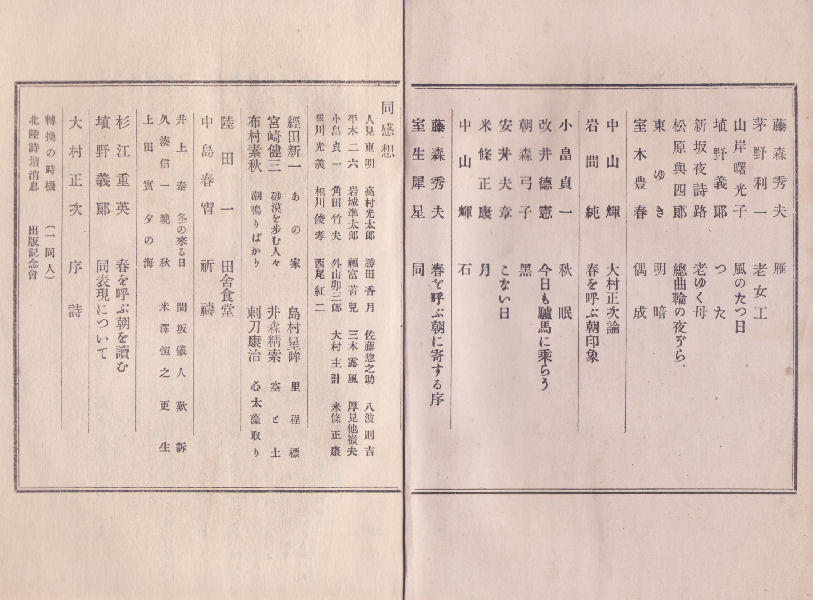 藤森秀夫 雁
茅野利一 老女工
山岸曙光子 風のたつ日
埴野義郎 つた
新坂夜詩路 老ゆく母
松原與四郎 總曲輪の夜から
東ゆき 明暗
室木豊春 偶成
中山輝 大村正次論
岩間純 春を呼ぶ朝印象
小畠貞一 秋眠
改井德憲 今日も驢馬に乘らう
朝森弓子 黑
安井夫章 こない日
米條正康 月
中山輝 石
藤森秀夫 春を呼ぶ朝に寄する序
室生犀星 同
同感想
人見東明 高村光太郎 勝田香月 佐藤惣之助 八波則吉
平木二六 岩城準太郎 福富菁兒 三木露風 厚見他嶺夫
小畠貞一 角田竹夫 外山卯三郎 大村主計 米條正康
川光義 相川俊孝 西尾紅二
經田新一 あの家 島村星眸 里程標
宮崎健三 砂漠を歩む人々 井森精索 空と土
布村素秋 潮鳴りばかり 刺刀康治 心太藻取り
陸田一 田舍食堂
中島春宵 祈禱
井上泰 冬の來る日 間坂儀人 歎訴
久湊信一 晩秋 米澤恒之 更生
上田實 夕の海
杉江重英 春を呼ぶ朝を讀む
埴野義郎 同表現について
大村正次 序詩
轉換の時機 (一同人)
北陸詩壇消息 出版記念會